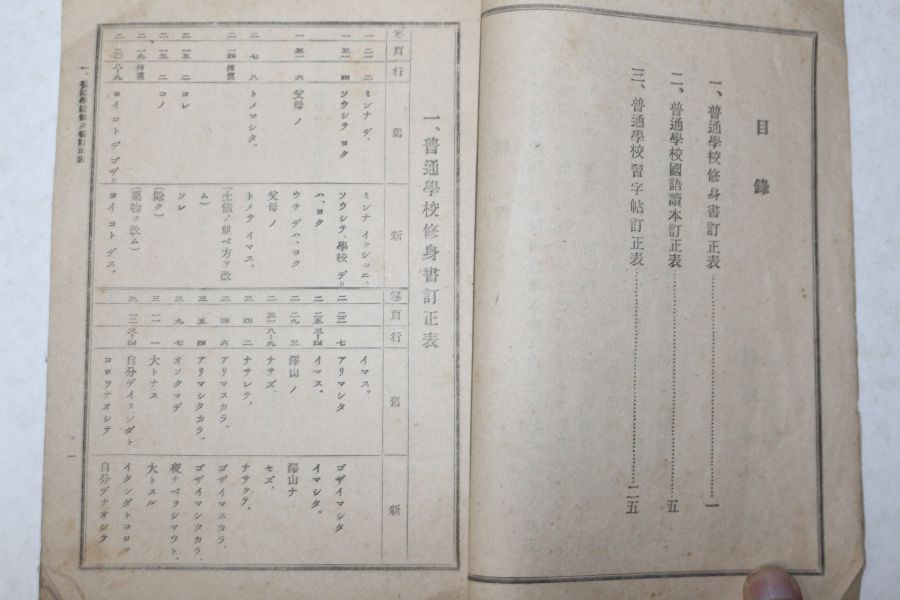 目錄
一、普通學校修身書訂正表……一
二、普通學校國語讀本訂正表……五
三、普通學校習字帖訂正表……二五
一、普通學校修身書訂正表
卷 頁 行 舊 新
ミンナ デ、 ミンナ イッショニ、
四 ソウシテ ヨク ソウシテ、學校 デハ、ヨク
六 父母 ノ ウチデハ、ヨク 父母 ノ
二 七 八 トメマシタ。 トメテ イマス。
二 一四 插畫 (土俵ノ並ベ方ヲ改ム)
二 一五 二 コレ ソレ
二 一五 二 コノ (除ク)
二 一九 插畫 (果物ヲ改ム)
二 二〇 八―九 ヨイ コトデゴザリ ヨイ コト デス。
卷 頁 行 舊 新
イマス。
二 二三 七 アリマシタ ゴザイマシタ
二 二五 三―四 イマス。 イマシタ。
二 二九 三 澤山ノ 澤山ナ
二 三一 八―九 ナサズ、 セズ、
三 四 二 ナサレテ、 ナサッテ、
三 四 六 アリマスカラ、 ゴザイマスカラ、
三 五 四 アリマシタカラ、 ゴザイマシタカラ、
三 九 七 オソクマデ 夜ナベヲシマウト、
三 一一 一 大トナス 大トスル
三 一三 三―四 自分デイタンダトコロヲナオシテ イタンダトコロヲ自分デナオシテ
一、普通學校修身書訂正表
一